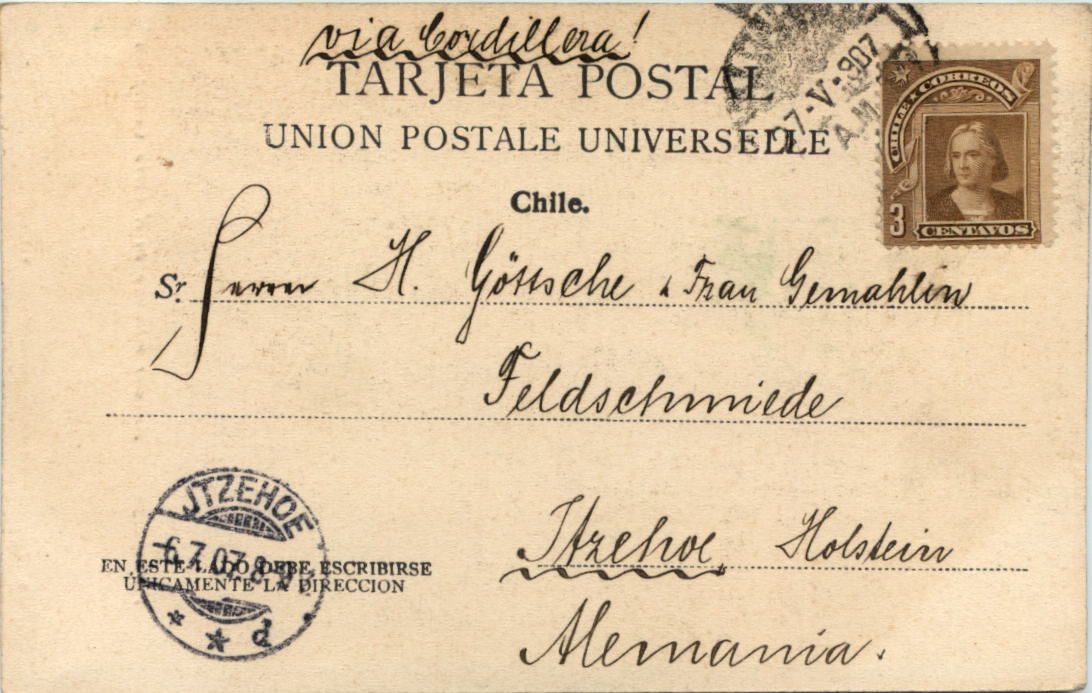 via Cordillera!
TARJETA POSTAL
UNION POSTALE UNIVERSELLE
27·V·907
A.M.
CHILE CORREOS
3 CENTAVOS
Chile.
Sr. Herrn H. Göttsche & Frau Gemahlin
Feldschmiede
JTZEHOE
6.7.07.8-9
* * d
EN ESTE LADO DEBE ESCRIBIRSE
ÚNICAMENTE LA DIRECCION
Itzehoe Holstein
Alemania.